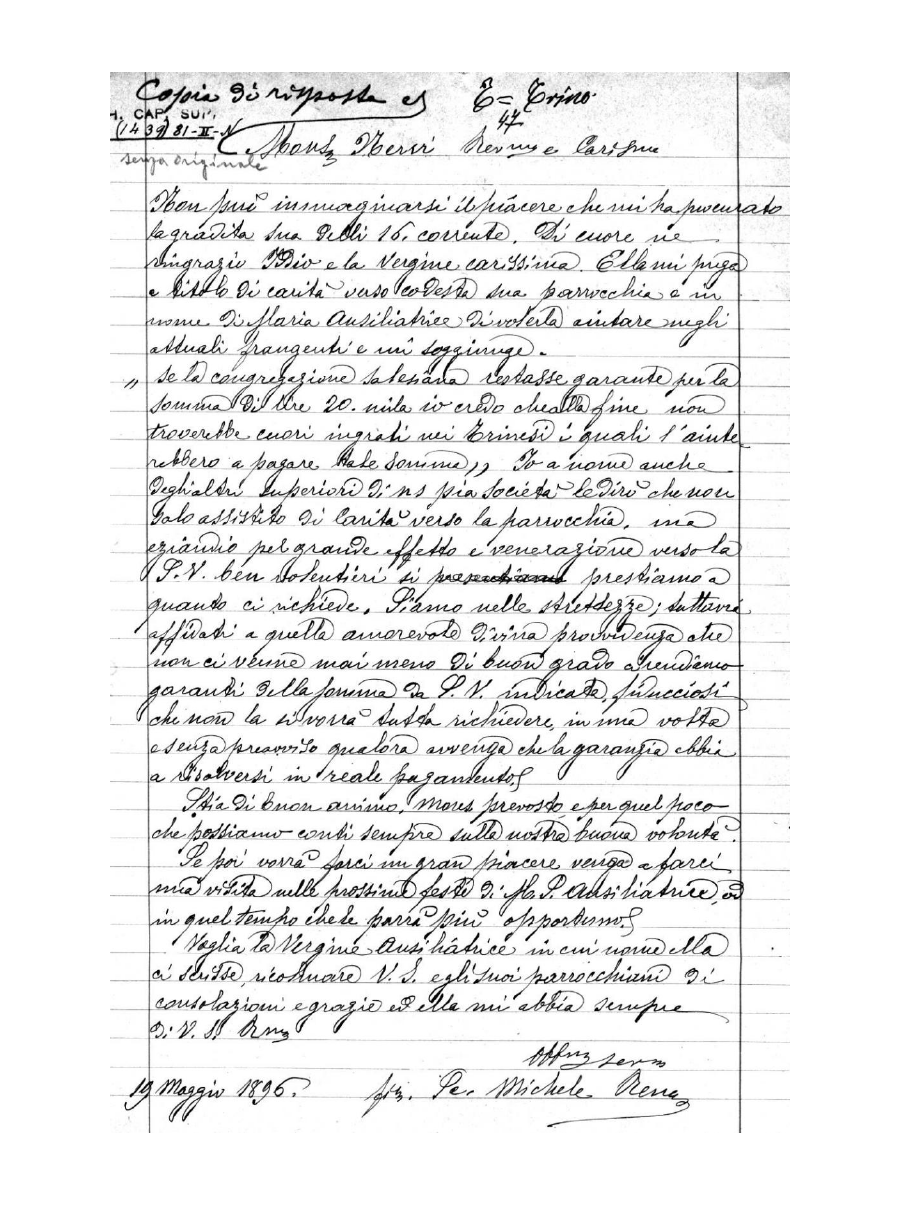 Copia di risposta
E = Trino
47
H. CAP. SUP.
(1439) 81-II-N
senza originale
Mons Nervi Revmo e Carismo
Non può immaginarsi il piacere che mi ha procurato
la gradita sua delli 16. corrente. Di cuore ne
ringrazio Iddio e la Vergine carissima. Ella mi prega
a titolo di carità verso codesta sua parrocchia e in
nome di Maria Ausiliatrice di voterla aiutare negli
attuali frangenti e mi soggiunge.
„ Se la congregazione salesiana restasse garante per la
somma di lire 20. mila io credo che alla fine non
troverebbe cuori ingrati nei Trinesi i quali l'aiute
rebbero a pagare tale somma,, Io a nome anche
degli altri superiori di ns pia società le dirò che non
solo assistito di carità verso la parrocchia, ma
eziandio per grande effetto e venerazione verso la
S.V. ben volentieri si prestiamo a
quanto ci richiede. Siamo nelle strettezze; tuttavia
affidati a quella amorevole divina provvidenza che
non ci venne mai meno di buon grado ci rendiamo
garanti della somma da S.V. indicata, fiduciosi
che non la si vorrà tutta richiedere in una volta
e senza preavviso qualora avvenga che la garanzia abbia
a risolversi in reale pagamento
Stia di buon animo, Mons prevosto e per quel poco
che possiamo conti sempre sulla nostra buona volontà.
Se poi vorrà farci un gran piacere venga a farci
una visita nelle prossime feste di M. S. Ausiliatrice, od
in quel tempo che le parrà più opportuno
Voglia la Vergine Ausiliatrice in cui nome ella
ci scrisse, ricolmare V. S. e gli suoi parrocchiani di
consolazioni e grazie ed ella mi abbia sempre
di V. S. Rma
Obbmo servo
19 Maggio 1896. Michele Rua